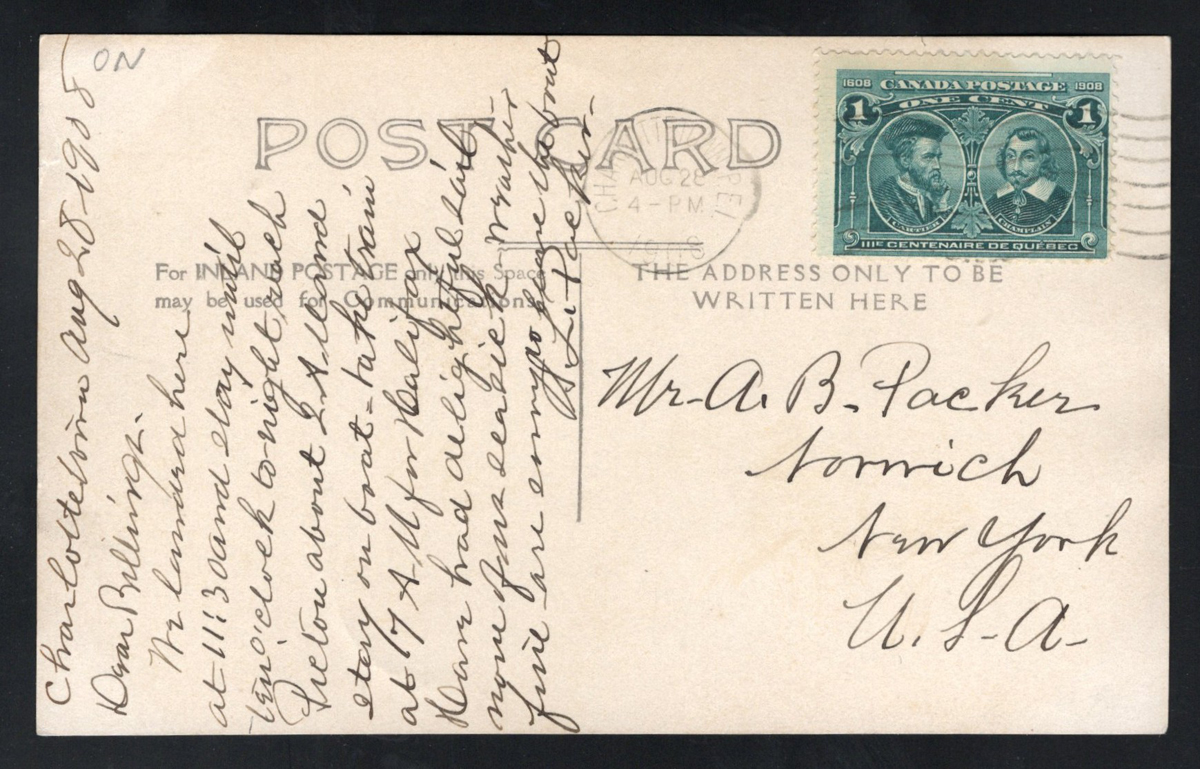 ON
POST CARD
CANADA POSTAGE
1608 1908
ONE CENT
1 1
CARTIER CHAMPLAIN
IIIE CENTENAIRE DE QUÉBEC
AUG 28
4-PM
PEI
For INLAND POSTAGE only this Space
may be used for Communications.
THE ADDRESS ONLY TO BE
WRITTEN HERE
Charlottetown Aug 28-1908
Dear Billings.
We landed here
at 11:30 and stay until
ten o'clock to-night, reach
Picton about 2 A.M. and
stay on boat - take train
at 7 A-M for Halifax
Have had delightful sail-
none of us seasick - weather
fine - are enjoying the boat
Packer-
Mr. A. B. Packer
Norwich
New York
U.S.A-